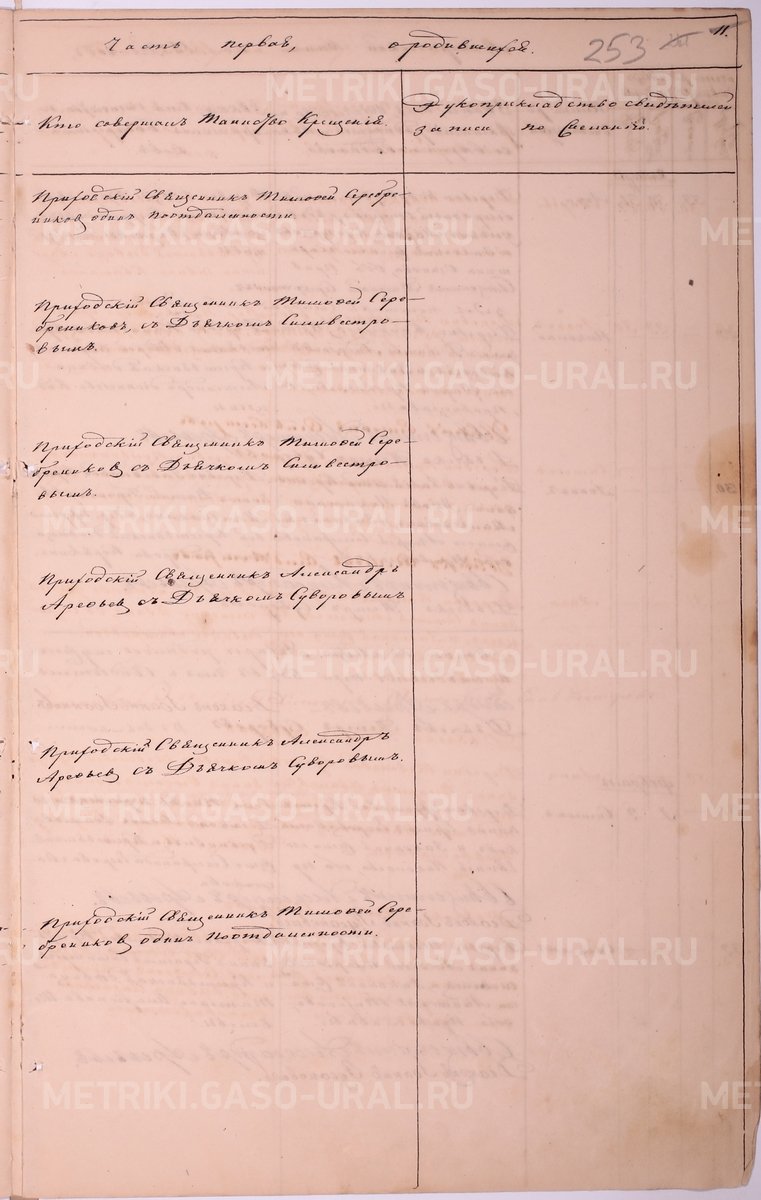 Часть первая, о родившихся.
253
11.
Кто совершалъ Таинство Крещенія.
Рукоприкладство свидѣтелей
записи по желанію.
Приходскій Священникъ Тимофей Серебре-
никовъ одинъ поотдаленности.
Приходскій Священникъ Тимофей Сере-
брениковъ, съ Дьячкомъ Силивестро-
вымъ.
Приходскій Священникъ Тимофей Сере-
брениковъ съ Дьячкомъ Силивестро-
вымъ.
Приходскій Священникъ Александръ
Арефьевъ съ Дьячкомъ Суворовымъ
Приходскій Священникъ Александръ
Арефьевъ съ Дьячкомъ Суворовымъ.
Приходскій Священникъ Тимофей Сере-
брениковъ одинъ поотдаленности.
METRIKI.GASO-URAL.RU